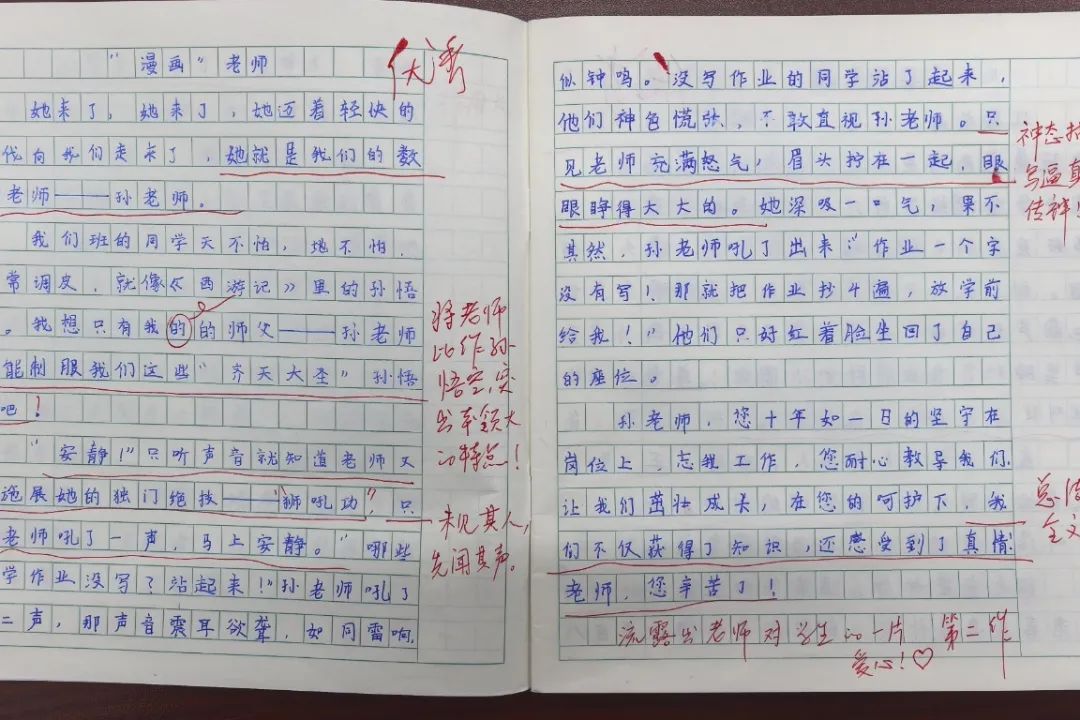 "漫画"老师
优秀
她来了，她来了，她迈着轻快的
伐向我们走来了，她就是我们的数
老师——孙老师。
我们班的同学天不怕，地不怕，
常调皮，就像《西游记》里的孙悟
。我想只有我的的师父——孙老师
能制服我们这些"齐天大圣"孙悟
吧！
"安静！"只听声音就知道老师又
施展她的独门绝技——"狮吼功"，只
老师吼了一声，马上安静。"哪些
学作业没写？站起来！"孙老师吼了
二声，那声音震耳欲聋，如同雷响，
将老师
比作孙
悟空，突
出本领大
的特点！
未见其人，
先闻其声。
似钟鸣。没写作业的同学站了起来，
他们神色慌张，不敢直视孙老师。只
见老师充满怒气，眉头拧在一起，眼
眼睁得大大的。她深吸一口气，果不
其然，孙老师吼了出来："作业一个字
没有写！那就把作业抄4遍，放学前
给我！"他们只好红着脸坐回了自己
的座位。
孙老师，您十年如一日的坚守在
岗位上，忘我工作，您耐心教导我们，
让我们茁壮成长，在您的呵护下，我
们不仅获得了知识，还感受到了真情！
老师，您辛苦了！
神态
写逼真
传神！
总结
全文
流露出老师对学生的一片
爱心！♡
第二件